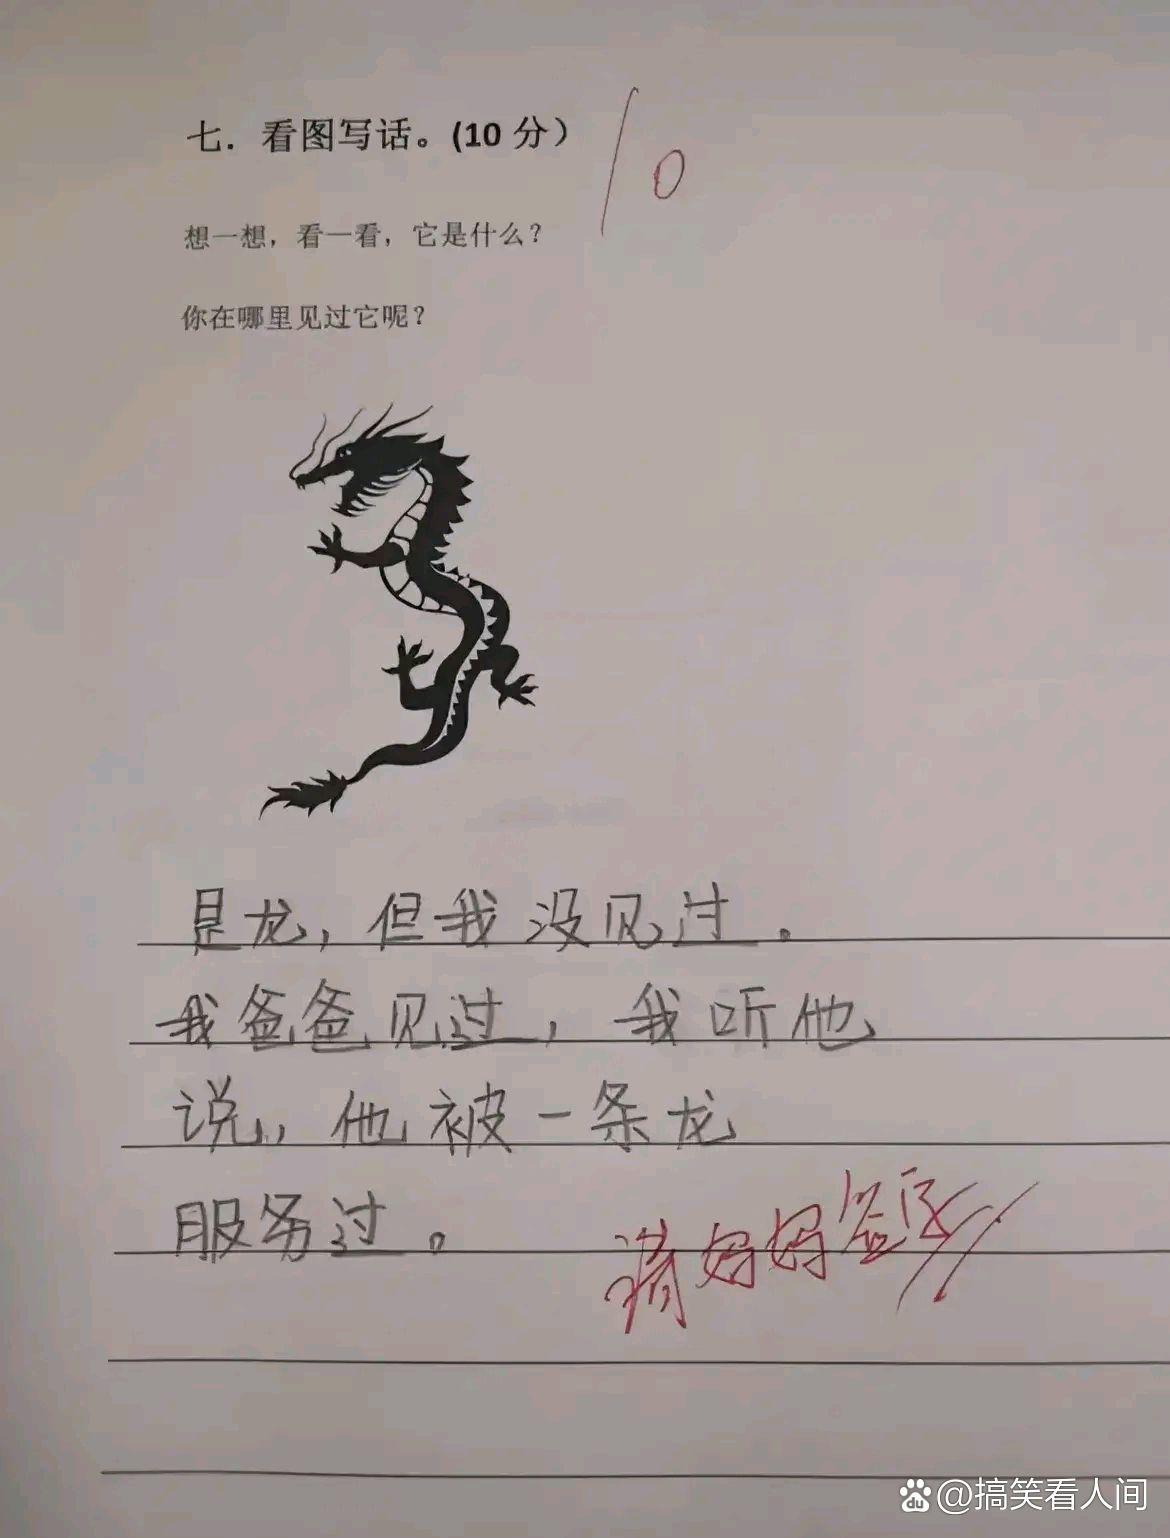 七. 看图写话。(10 分)
10
想一想，看一看，它是什么？
你在哪里见过它呢？
是龙，但我没见过。
我爸爸见过，我听他
说，他被一条龙
服务过。
请妈妈签字!!
du @搞笑看人间